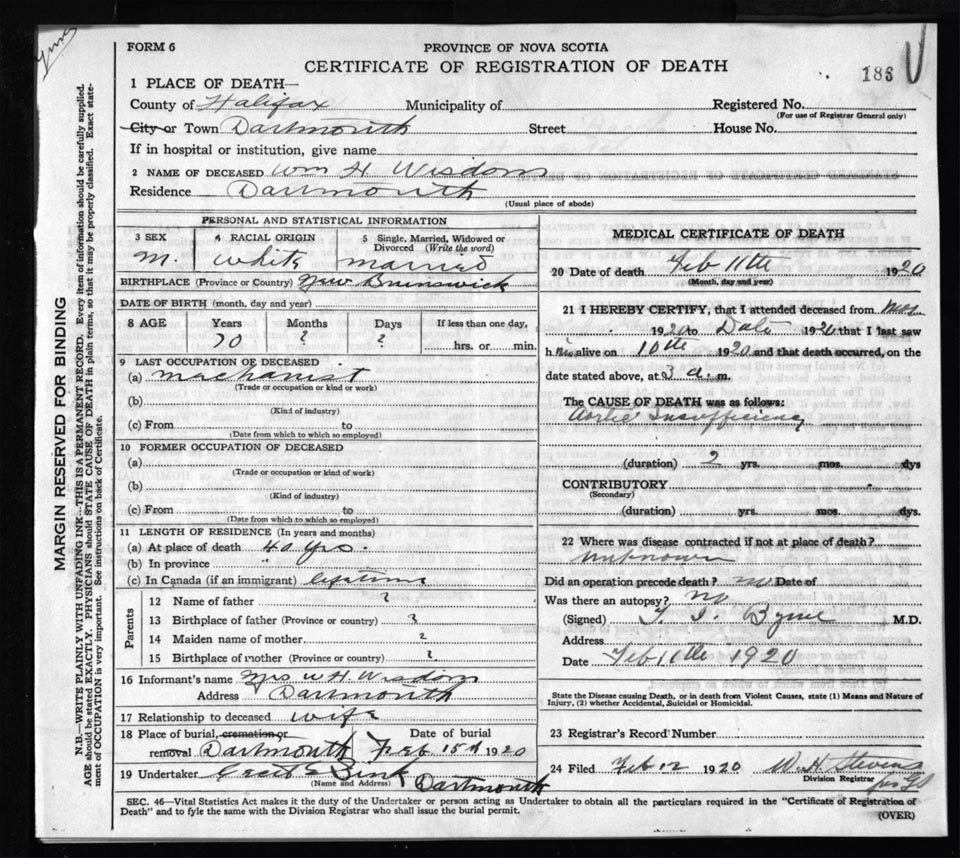 FORM 6
PROVINCE OF NOVA SCOTIA
CERTIFICATE OF REGISTRATION OF DEATH
186
1 PLACE OF DEATH—
County of Halifax Municipality of Registered No.
(For use of Registrar General only)
City or Town Dartmouth Street House No.
If in hospital or institution, give name
2 NAME OF DECEASED Wm H Wisdom
Residence Dartmouth
(Usual place of abode)
PERSONAL AND STATISTICAL INFORMATION
3 SEX 4 RACIAL ORIGIN 5 Single, Married, Widowed or Divorced (Write the word)
M. white married
BIRTHPLACE (Province or Country) New Brunswick
DATE OF BIRTH (month, day and year)
8 AGE Years Months Days If less than one day,
70 ? ? hrs. or min.
9 LAST OCCUPATION OF DECEASED
(a) machanist
(Trade or occupation or kind or work)
(b)
(Kind of industry)
(c) From to
(Date from which to which so employed)
10 FORMER OCCUPATION OF DECEASED
(a)
(Trade or occupation or kind of work)
(b)
(Kind of industry)
(c) From to
(Date from which to which so employed)
11 LENGTH OF RESIDENCE (In years and months)
(a) At place of death 40 yrs.
(b) In province "
(c) In Canada (if an immigrant) lifetime
Parents
12 Name of father ?
13 Birthplace of father (Province or country) ?
14 Maiden name of mother ?
15 Birthplace of mother (Province or country) ?
16 Informant's name Mrs W H Wisdom
Address Dartmouth
17 Relationship to deceased wife
18 Place of burial, cremation or Date of burial
removal Dartmouth Feb 15 1920
19 Undertaker
(Name and Address) Dartmouth
MEDICAL CERTIFICATE OF DEATH
20 Date of death Feb 11th 1920
(Month, day and year)
21 I HEREBY CERTIFY, that I attended deceased from
1920 to Date 1920 that I last saw
him alive on 10th 1920 and that death occurred, on the
date stated above, at 3 a. m.
The CAUSE OF DEATH was as follows:
Aortic Insufficiency
(duration) 2 yrs. mos. dys
CONTRIBUTORY
(Secondary)
(duration) yrs. mos. dys.
22 Where was disease contracted if not at place of death?
Unknown
Did an operation precede death? no Date of
Was there an autopsy? no
(Signed) Byrne M.D.
Address
Date Feb 11th 1920
State the Disease causing Death, or in death from Violent Causes, state (1) Means and Nature of
Injury, (2) whether Accidental, Suicidal or Homicidal.
23 Registrar's Record Number
24 Filed Feb 12 1920 W. H. Stevens
Division Registrar
SEC. 46—Vital Statistics Act makes it the duty of the Undertaker or person acting as Undertaker to obtain all the particulars required in the "Certificate of Registration of
Death" and to fyle the same with the Division Registrar who shall issue the burial permit.
(OVER)
MARGIN RESERVED FOR BINDING
N.B.—WRITE PLAINLY WITH UNFADING INK—THIS IS A PERMANENT RECORD. Every item of information should be carefully supplied.
AGE should be stated EXACTLY. PHYSICIANS should STATE CAUSE OF DEATH in plain terms, so that it may be properly classified. Exact state-
ment of OCCUPATION is very important. See instructions on back of Certificate.